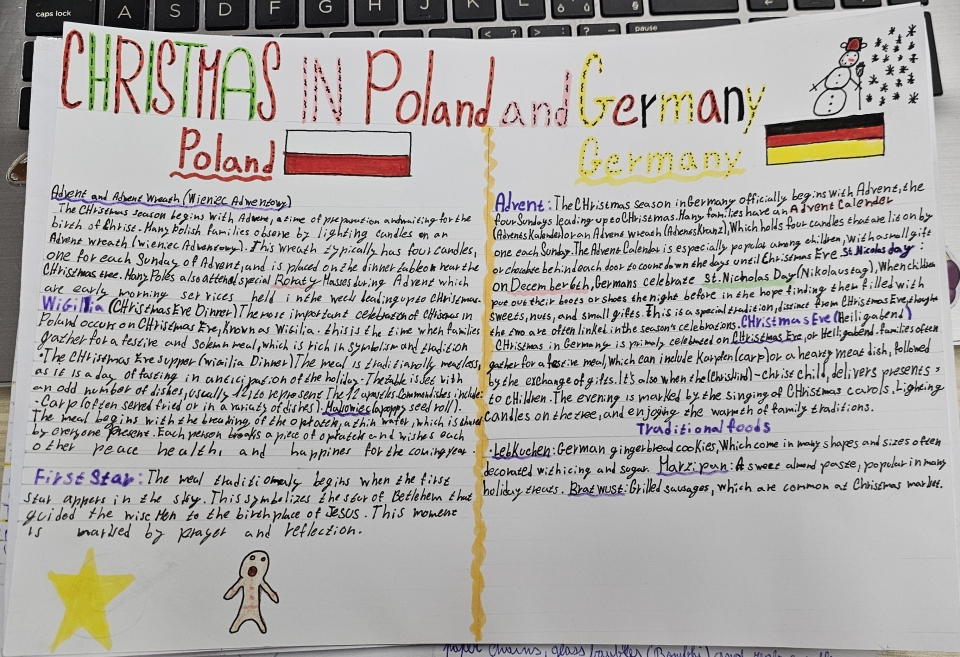 caps lock
A
S
D
F
G
H
J
pause
CHRISTMAS IN Poland and Germany
Poland
Advent and Advent Wreath (Wieniec Adwentowy)
The Christmas season begins with Advent, a time of preparation and waiting for the
birth of Christ. Many Polish families observe by lighting candles on an
Advent wreath (wieniec Adwentowy). This wreath typically has four candles,
one for each Sunday of Advent, and is placed on the dinner table or near the
Christmas tree. Many Poles also attend special Roraty Masses during Advent which
are early morning services held in the week leading up to Christmas.
Wigilia (Christmas Eve Dinner) The most important celebration of Christmas in
Poland occurs on Christmas Eve, known as Wigilia. This is the time when families
gather for a festive and solemn meal, which is rich in symbolism and tradition
• The Christmas Eve supper (wigilia Dinner) The meal is traditionally meatless,
as it is a day of fasting in anticipation of the holiday. The table is set with
an odd number of dishes, usually 12, to represent The 12 apostles Common dishes include:
• Carp (often served fried or in a variety of dishes). Makowiec (a poppy seed roll).
The meal begins with the breaking of the opłatek, a thin wafer, which is shared
by everyone present. Each person breaks a piece of opłatek and wishes each
other peace health and happiness for the coming year.
First Star: The meal traditionally begins when the first
star appers in the sky. This symbolizes the star of Betlehem that
guided the wise Men to the birthplace of Jesus. This moment
is marked by prayer and reflection.
Germany
Advent: The Christmas season in Germany officially begins with Advent, the
four Sundays leading up to Christmas. Many families have an Advent Calender
(Advents Kalender) or an Advent Wreath (AdvensKranz), Which holds four candles that are lit on by
one each Sunday. The Advent Calendar is especially popular among children, with a small gift
or chocolate behind each door to count down the days until Christmas Eve St. Nicolas day:
on December 6th, Germans celebrate St. Nicholas Day (Nikolaustag), When children
put out their boots or shoes the night before in the hope finding them filled with
sweets, nuts, and small gifts. This is a special tradition, distinct from Christmas Eve, though
the two are often linked in the season's celebrations. Christmas Eve (Heiligabend)
Christmas in Germany is primaly celebrated on Christmas Eve, or Heiligabend. families often
gather for a festive meal, Which can include Karpfen (carp) or a hearty meat dish, followed
by the exchange of gifts. It's also when the (Christkind) - Christ child, delivers presents
to children. The evening is marked by the singing of Christmas carols, lighting
candles on the tree, and enjoying the warmth of family traditions.
Traditional foods
• LebKuchen: German gingerbread cookies, Which come in many shapes and sizes often
decorated with icing and sugar. Marzipan: A sweet almond paste, popular in many
holiday treats. Bratwust: Grilled sausages, which are common at Christmas market.
paper chains, glass baubles (Bombki) and